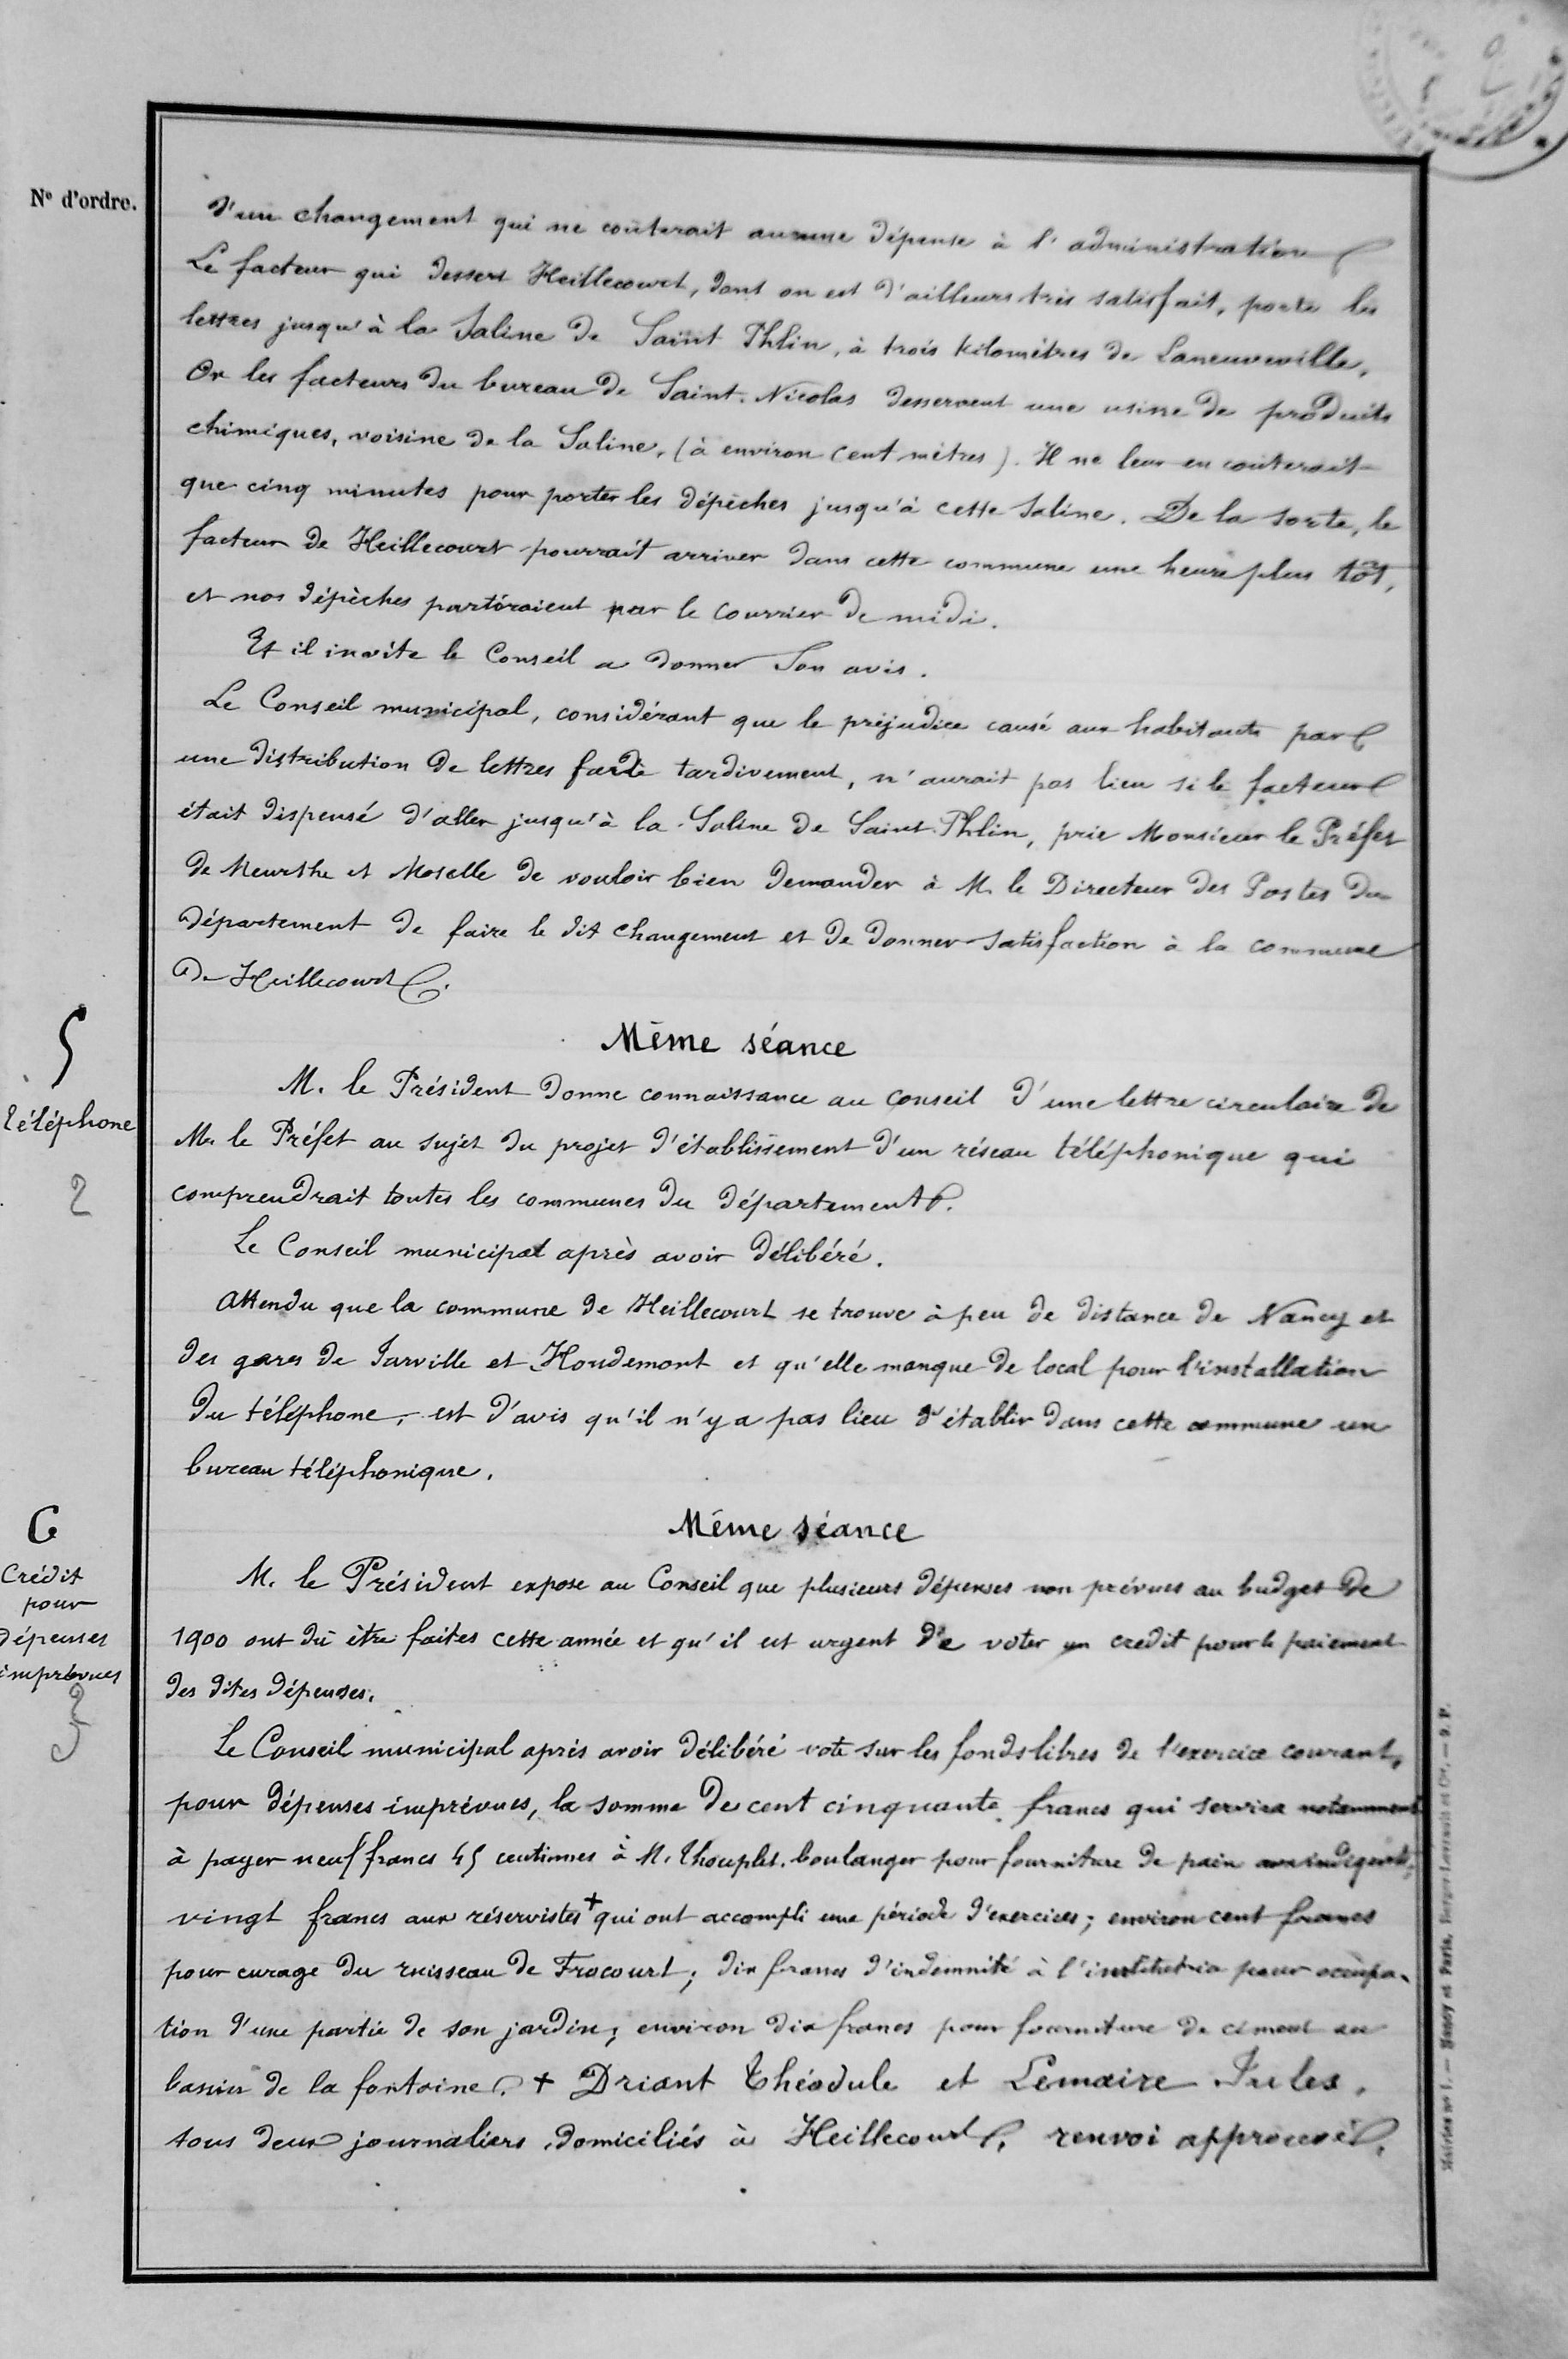 N° d'ordre.
d'un changement qui ne coûterait aucune dépense à l'administration
Le facteur qui dessert Heillecourt, dont on est d'ailleurs très satisfait, porte les
lettres jusqu'à la Saline de Saint Phlin, à trois kilomètres de Laneuveville.
Or les facteurs du bureau de Saint-Nicolas desservent une usine de produits
chimiques, voisine de la Saline, (à environ cent mètres). Il ne leur en coûterait
que cinq minutes pour porter les dépêches jusqu'à cette Saline. De la sorte, le
facteur de Heillecourt pourrait arriver dans cette commune une heure plus tôt,
et nos dépêches partiraient par le courrier de midi.
Et il invite le Conseil a donner son avis.
Le Conseil municipal, considérant que le préjudice causé aux habitants par
une distribution de lettres tardivement, n'aurait pas lieu si le facteur
était dispensé d'aller jusqu'à la Saline de Saint-Phlin, prie Monsieur le Préfet
de Meurthe et Moselle de vouloir bien demander à M. le Directeur des Postes du
département de faire le dit changement et de donner satisfaction à la commune
de Heillecourt.
Même séance
5
Téléphone
2
M. le Président donne connaissance au conseil d'une lettre circulaire de
M. le Préfet au sujet du projet d'établissement d'un réseau téléphonique qui
comprendrait toutes les communes du département.
Le Conseil municipal après avoir délibéré.
Attendu que la commune de Heillecourt se trouve à peu de distance de Nancy et
des gares de Jarville et Houdemont et qu'elle manque de local pour l'installation
du téléphone, est d'avis qu'il n'y a pas lieu d'établir dans cette commune un
bureau téléphonique.
Même séance
6
Crédit
pour
dépenses
imprévues
3
M. le Président expose au Conseil que plusieurs dépenses non prévues au budget de
1900 ont dû être faites cette année et qu'il est urgent de voter un credit pour le paiement
des dites dépenses.
Le Conseil municipal après avoir délibéré vote sur les fonds libres de l'exercice courant,
pour dépenses imprévues, la somme de cent cinquante francs qui servira notamment
à payer neuf francs 45 centimes à M. Thouplet, boulanger pour fourniture de pain aux indigents;
vingt francs aux réservistes + qui ont accompli une période d'exercices; environ cent francs
pour curage du ruisseau de Frocourt; dix francs d'indemnité à l'institutrice pour occupa-
tion d'une partie de son jardin; environ dix francs pour fourniture de ciment au
bassin de la fontaine. + Driant Théodule et Lemaire Jules,
tous deux journaliers, domiciliés à Heillecourt, renvoi approuvé.
Mairies n° 1. — Nancy et Paris, Berger-Levrault et Cie. — 2. P.